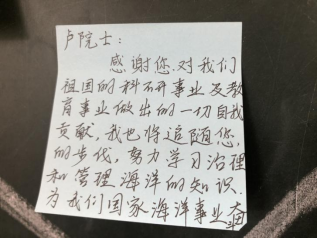 卢院士：
感谢您对我们
祖国的科研事业及教
育事业做出的一切自我
贡献，我也将追随您，
的步伐，努力学习治理
和管理海洋的知识．
为我们国家海洋事业